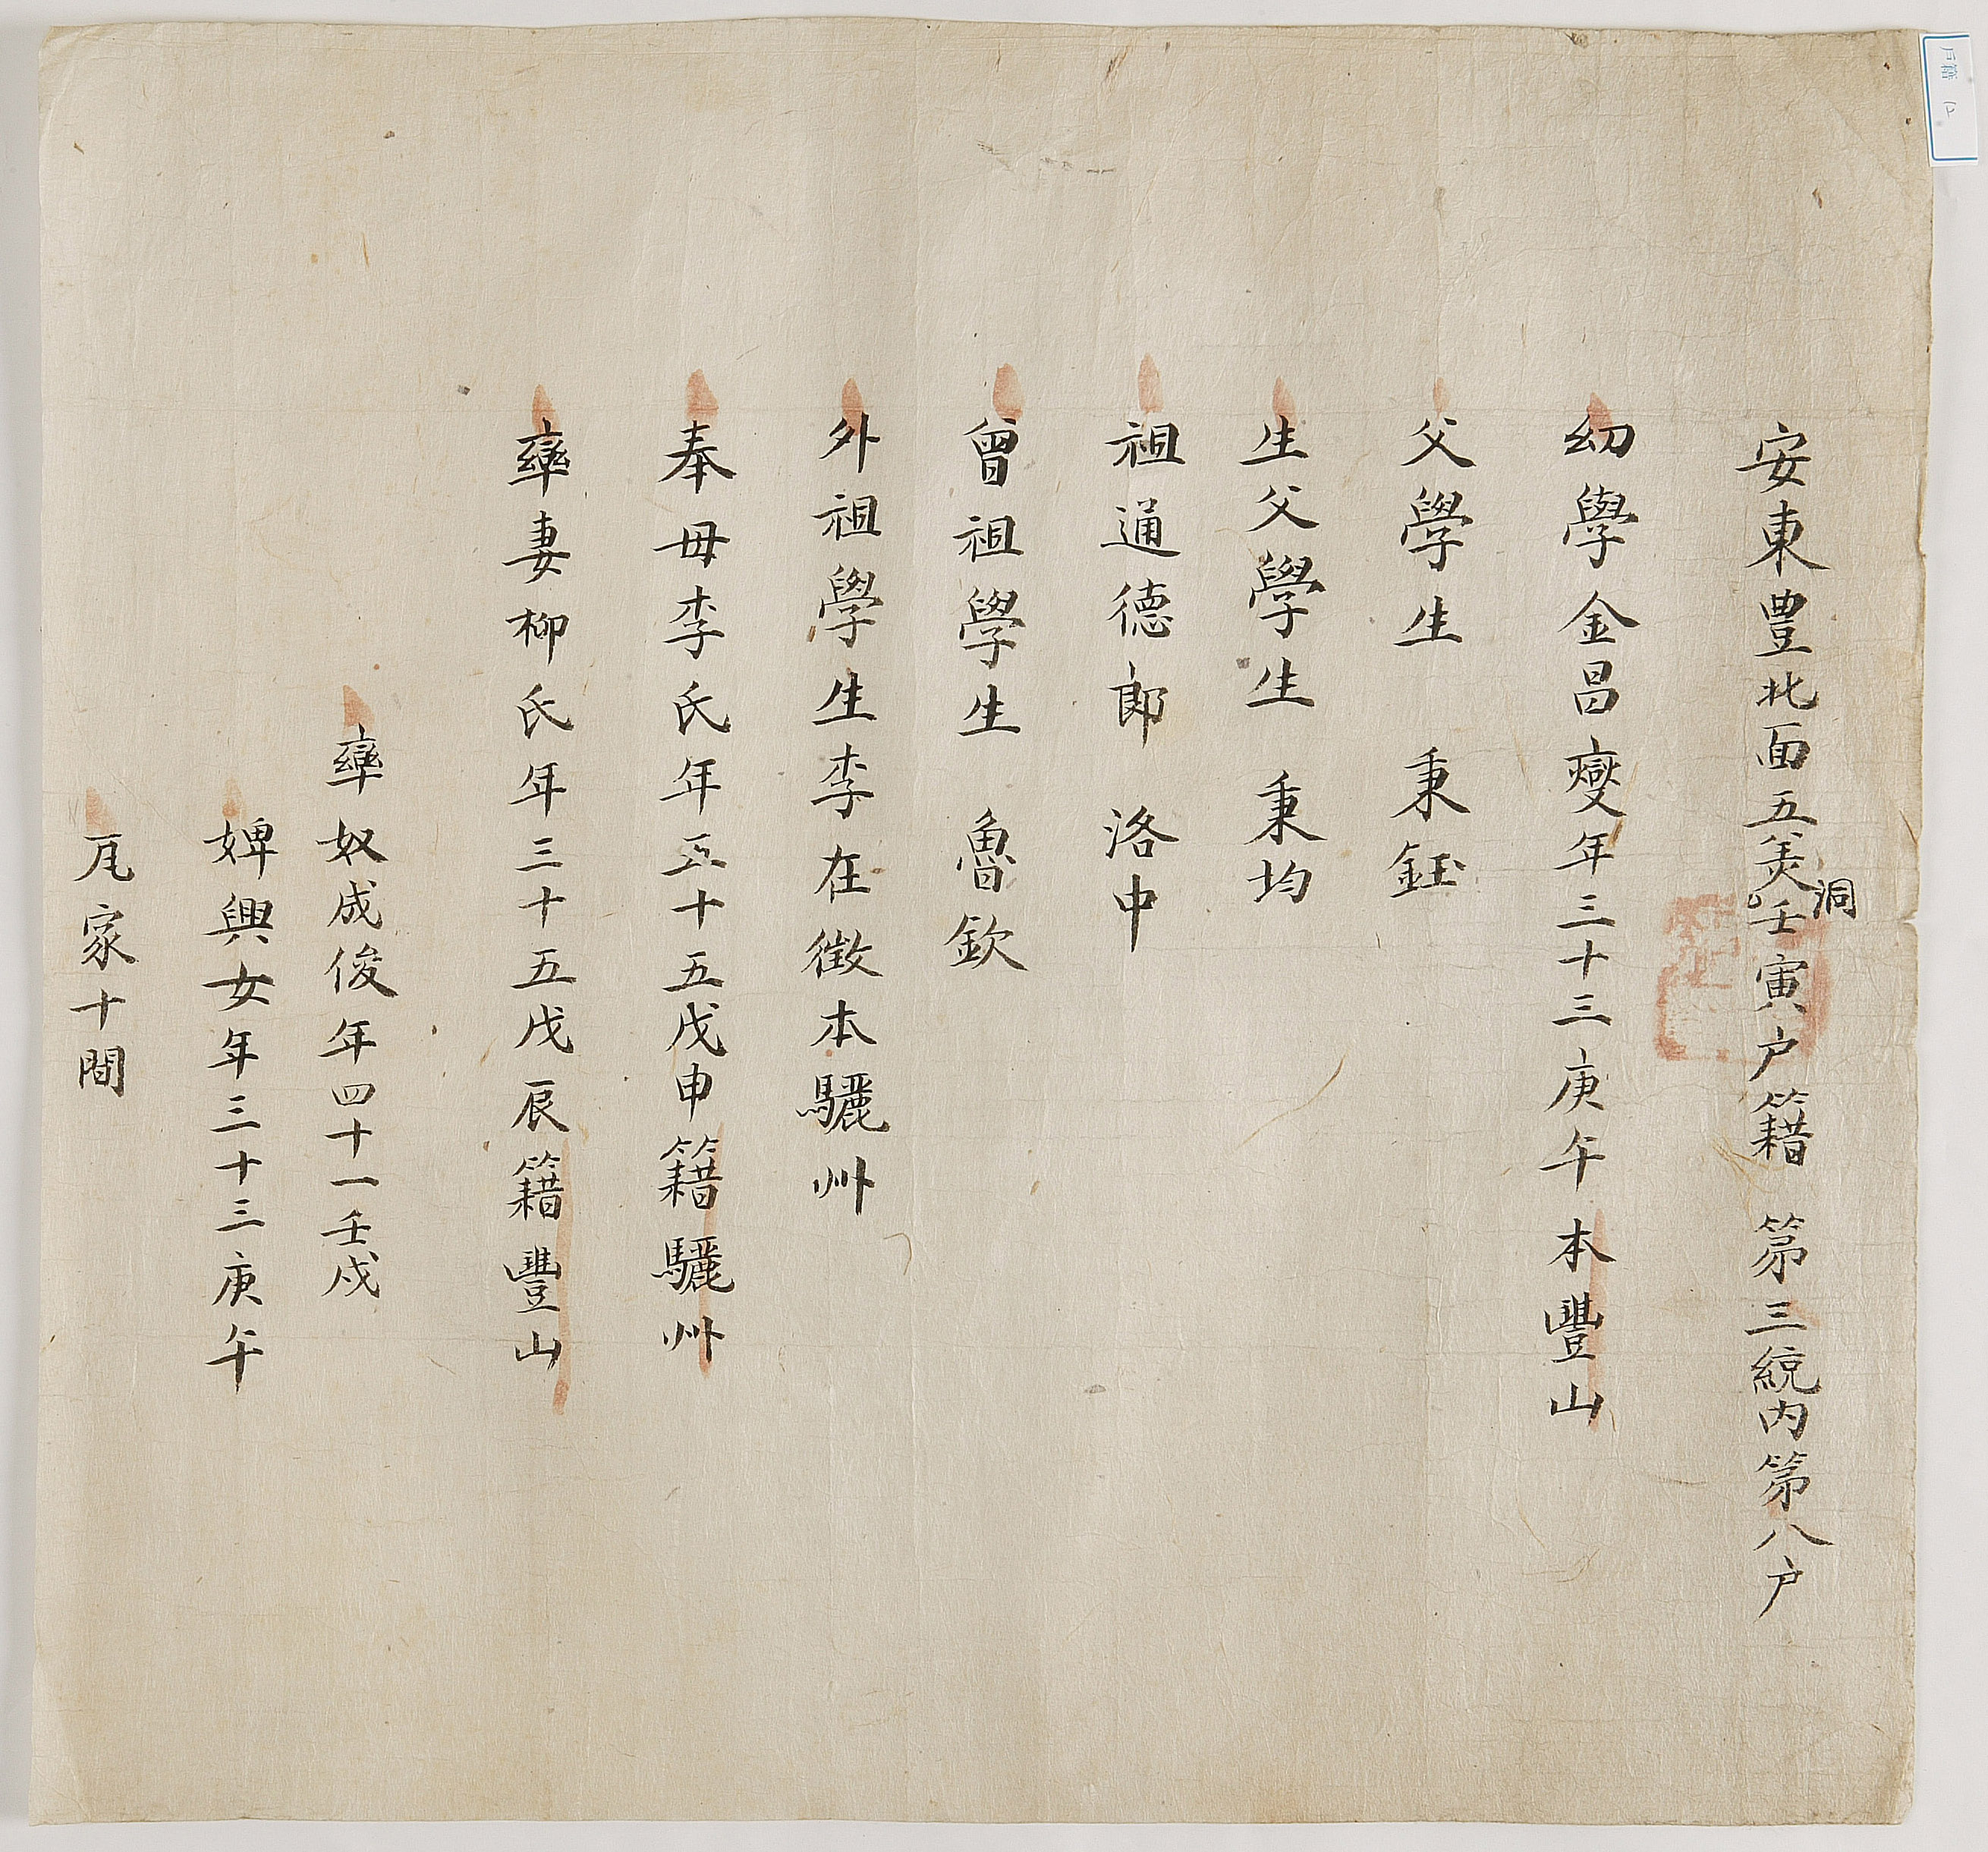 安東豊北面五美洞壬寅户籍 第三統内第八户
幼學金昌燮年三十三庚午本豐山
父學生 秉鈺
生父學生 秉均
祖通德郎 洛中
曾祖學生 魯欽
外祖學生李在徵本驪州
奉母李氏年五十五戊申籍驪州
率妻柳氏年三十五戊辰籍豐山
率奴成俊年四十一壬戌
婢興女年三十三庚午
瓦家十間
户籍